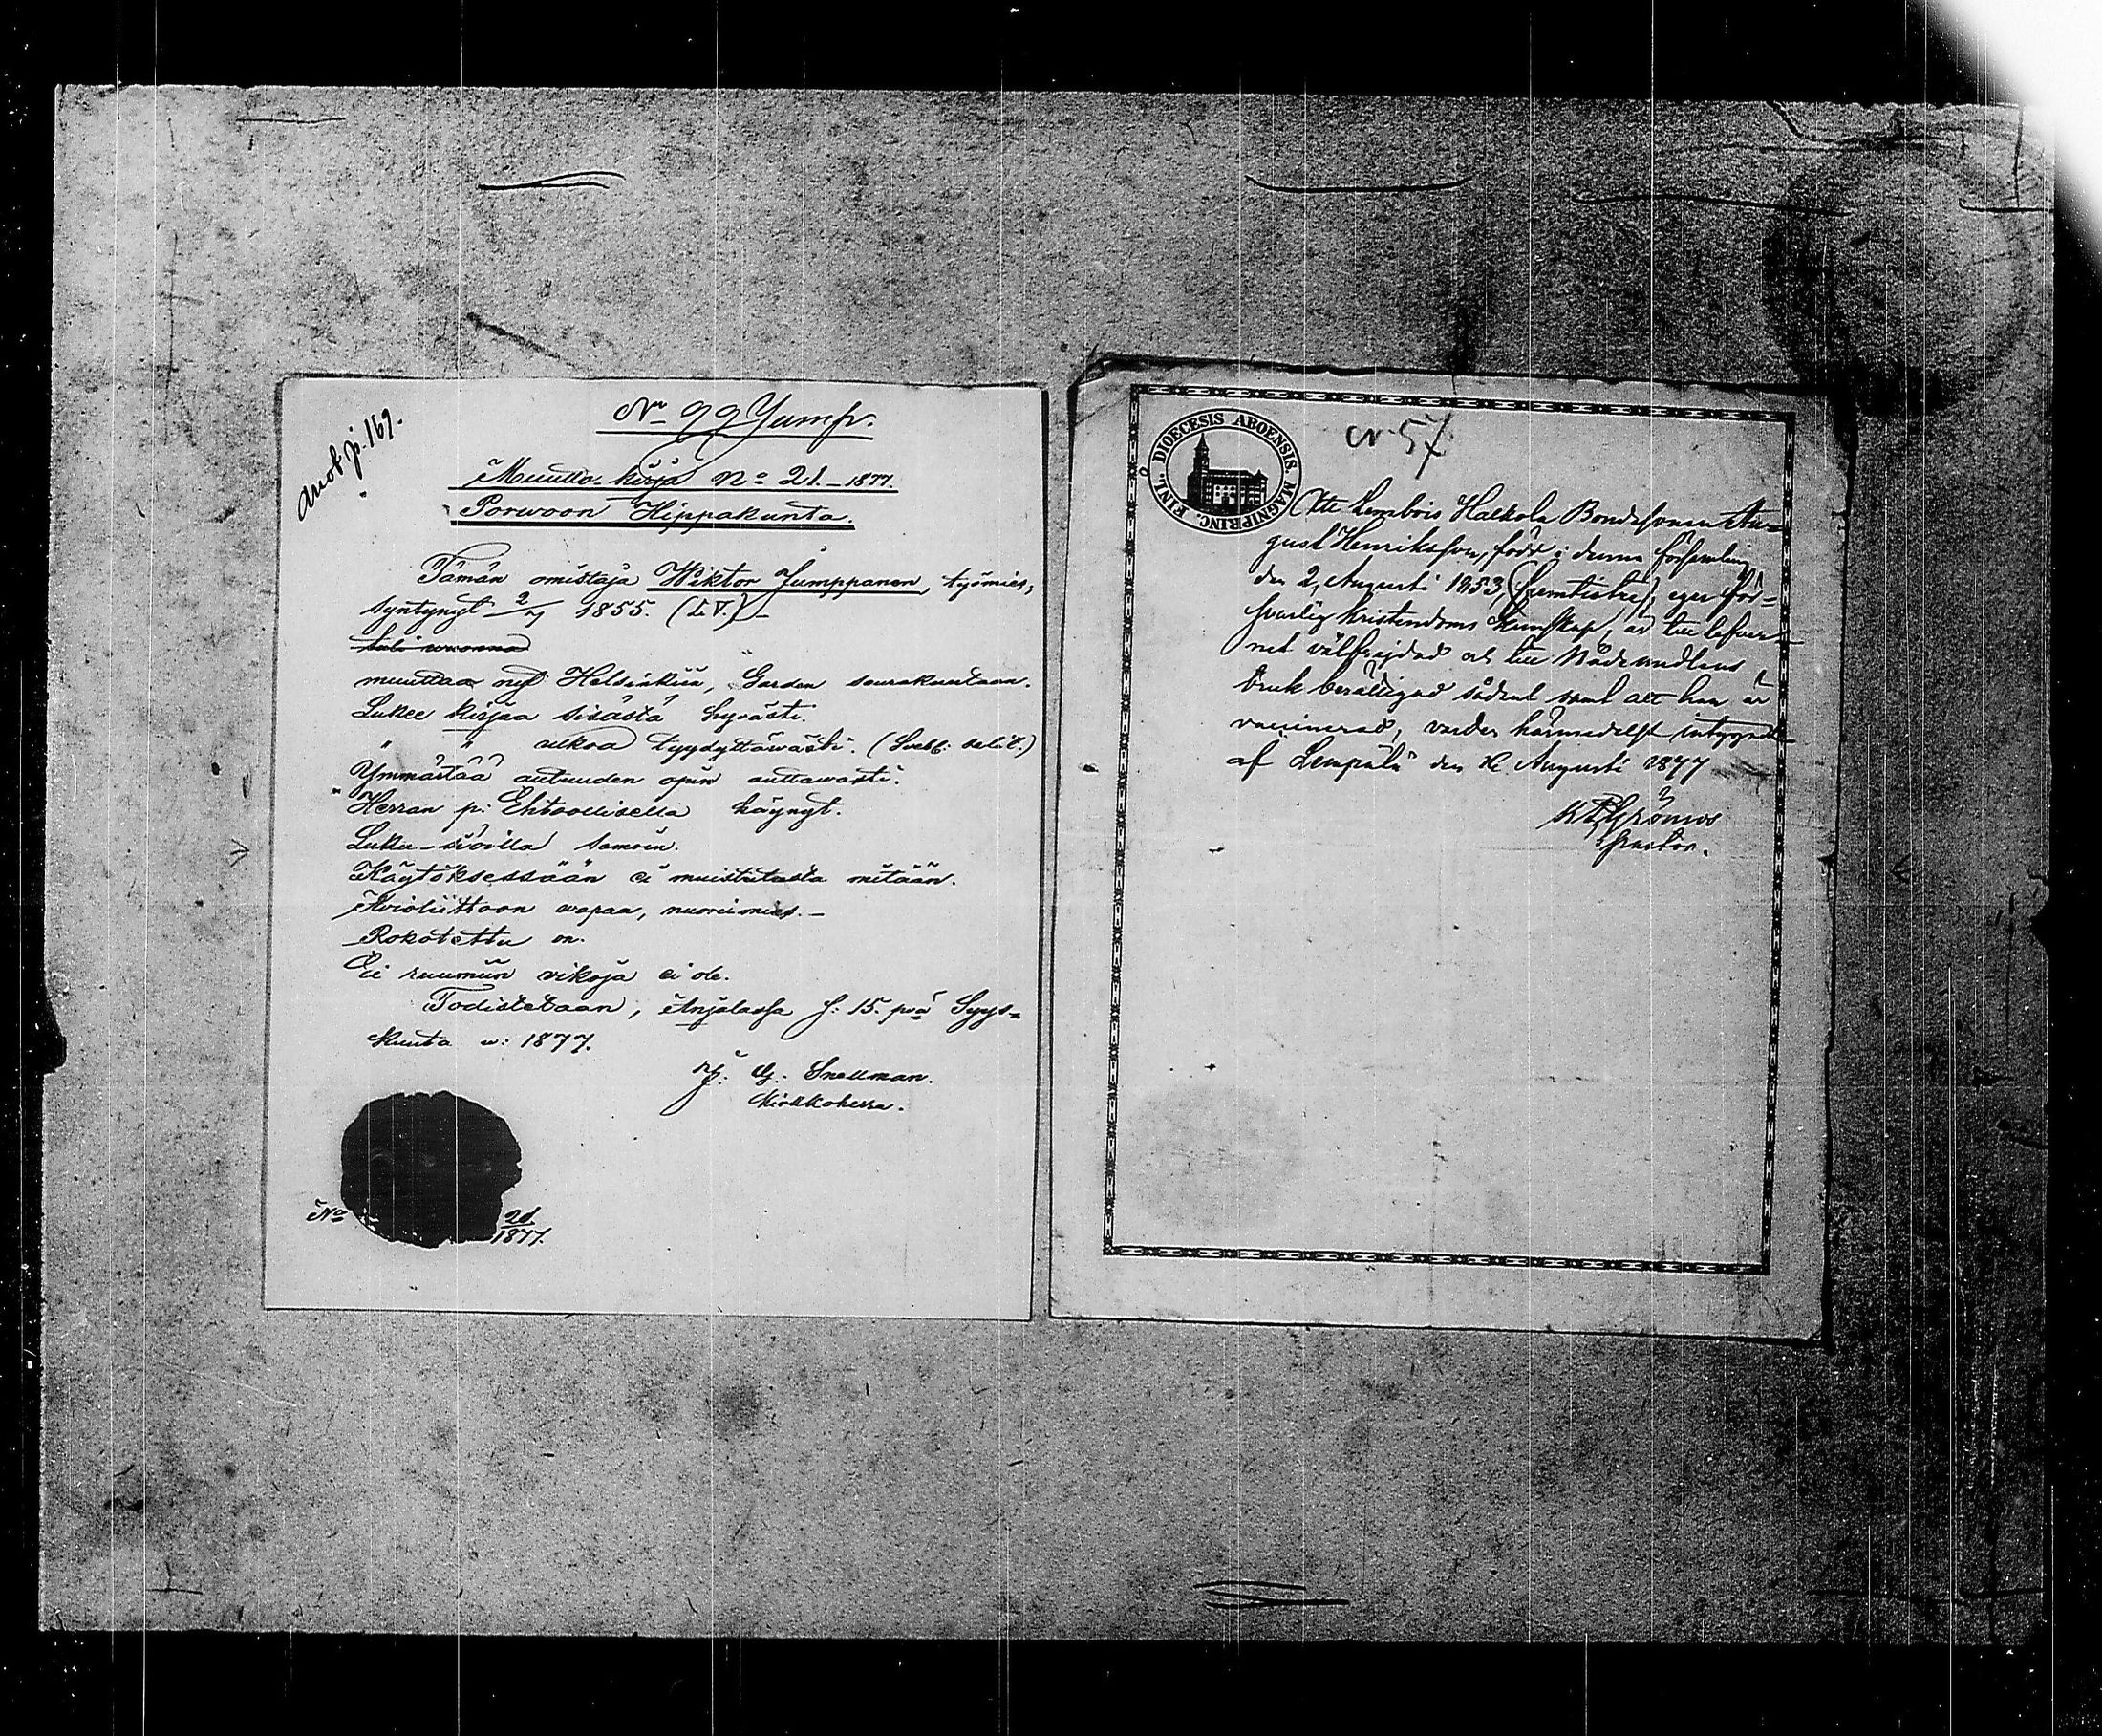 anot p. 169.
No 99 Jumpr.
Muutto-kirja No 21.-1877.
Porwoon Hippakunta.
Tämän omistaja Wiktor Jumppanen, työmies,
syntynyt 2/7 1855. (LV.)-
tuli wuonna
muuttaa nyt Helsinkiin, Garden seurakuntaan.
Lukee kirjaa sisästä hywästi.
" " ulkoa tyydyttäwästi. (Svebb: selit.)
Ymmärtää autuuden opin auttawasti.
Herran p: Ehtoollisella käynyt.
Luku-sioilla samoin.
Käytöksessään ei muistutusta mitään.
Awioliittoon wapaa, nuorimies.-
Rokotettu on.
Ei ruumiin vikoja ei ole.
Todistetaan, Anjalassa s: 15. pnä Syys-
kuuta w: 1877.
J. G. Snellman.
Kirkkoherra.
No 21
1877.
DIOECESIS ABOENSIS. MAGNI PRINC. FINL.
N 57
Att Lembois Halkola Bondesonen Au-
gust Henriksson, född i denna församling
den 2, Augusti 1853, (femtiotre), eger för-
svarlig Kristendoms Kunskap, är till lefver-
net välfrejdad och till Nådemedlens
bruk berättigad sådant samt att han är
vaccinerad, varder härmedelst intygadt
af Lempälä den 16 Augusti 1877
Pastor.